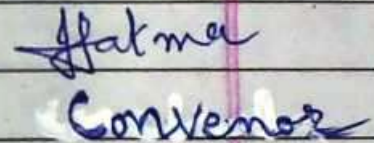 Hatma
Convenor